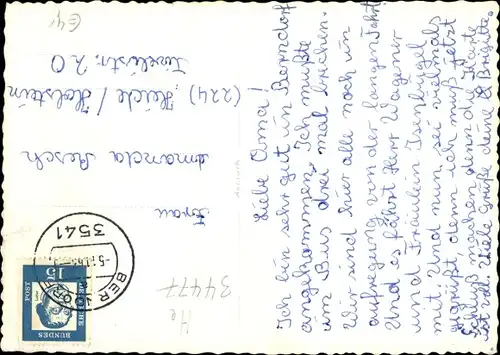 Liebe Oma!
Ich bin sehr gut in Berndorf
angekommen. Ich mußte
im Bus drei mal brechen.
Wir sind hier alle noch in
aufregung von der langen Fahrt.
Und es fährt Herr Wagner
und Fräulein Isenbügel
mit. Und nun sei vielmals
gegrüßt denn ich muß jetzt
Schluß machen denn die Karte
ist voll Viele Grüße deine Brigitte.
Frau
Amanda
(224) Heide / Holstein
20
3541
BERNDORF
15
DEUTSCHE
BUNDES
POST
34477
He